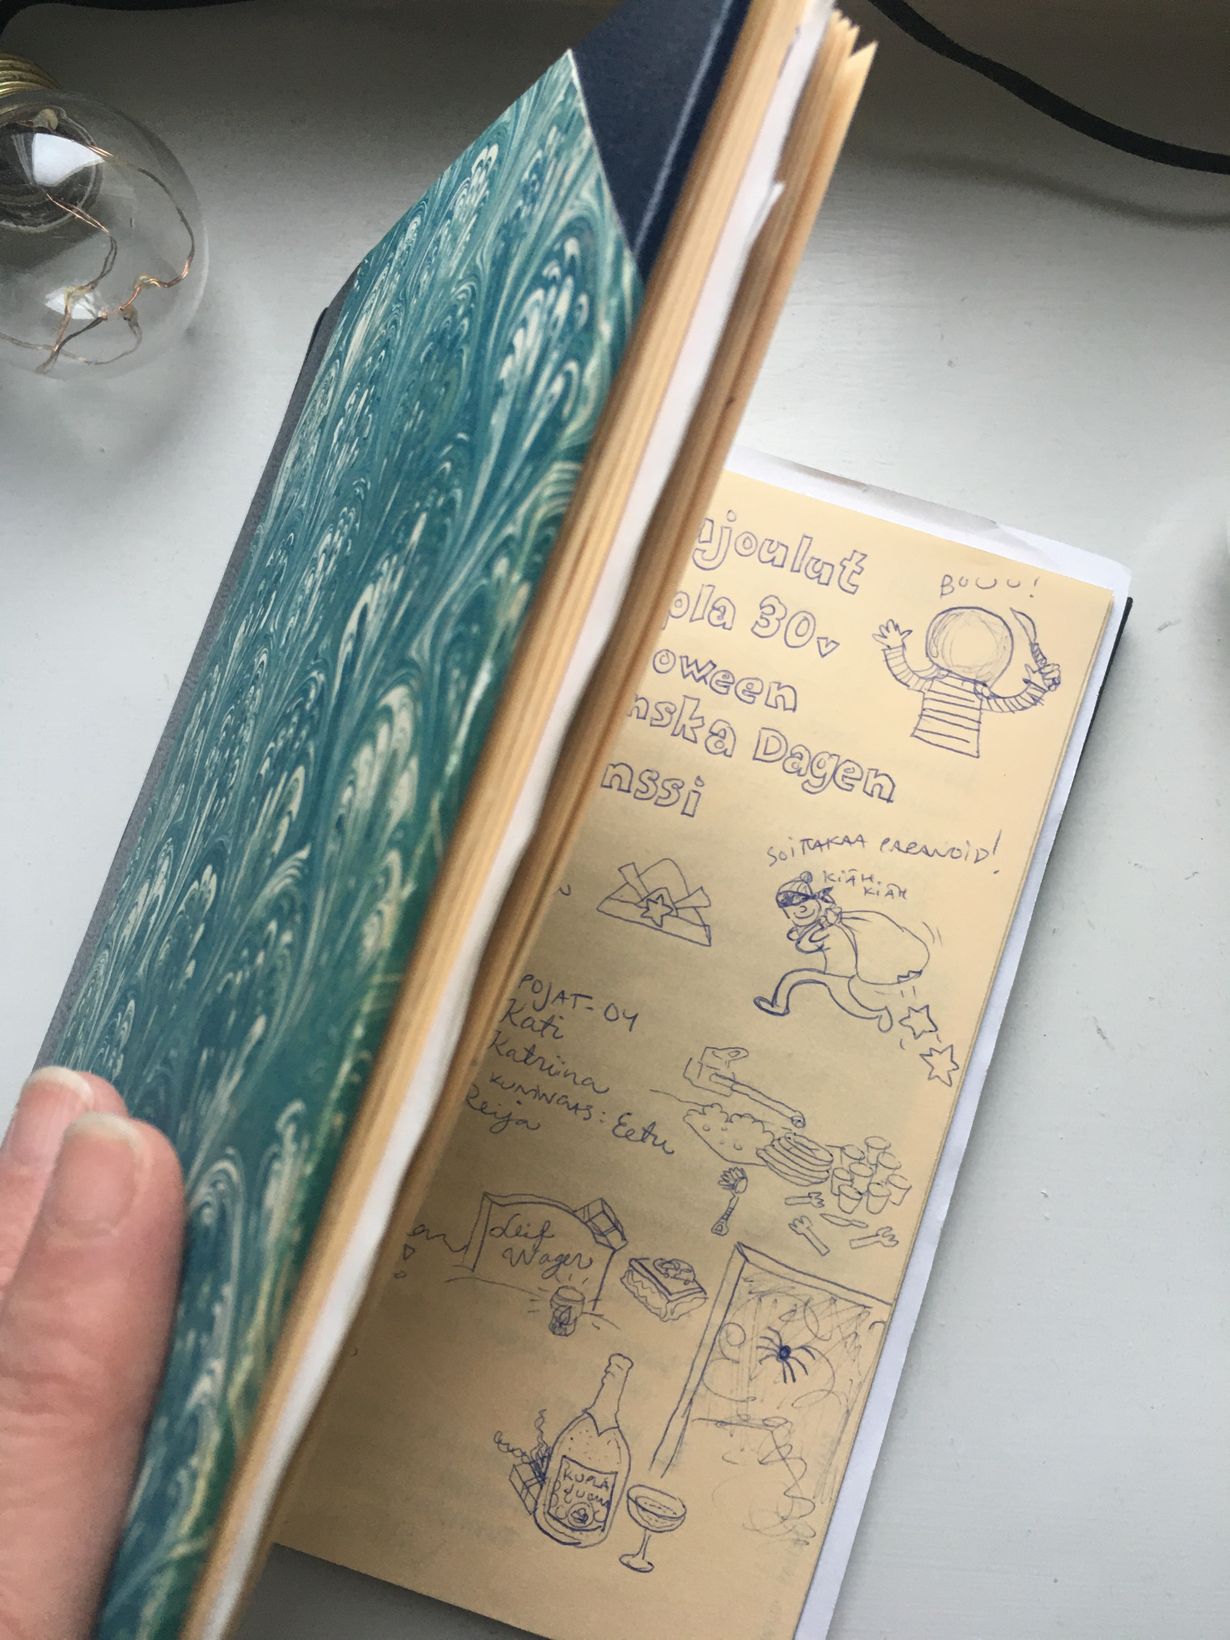 ujoulut
pla 30v
oween
nska Dagen
nssi
BUUU!
SOITTAKAA PARANOID!
KIÄH
KIÄH
POJAT-04
Kati
Katriina
KUNINGAS: Eetu
Reija
Leif
Wager
KUPLA
JUOMA